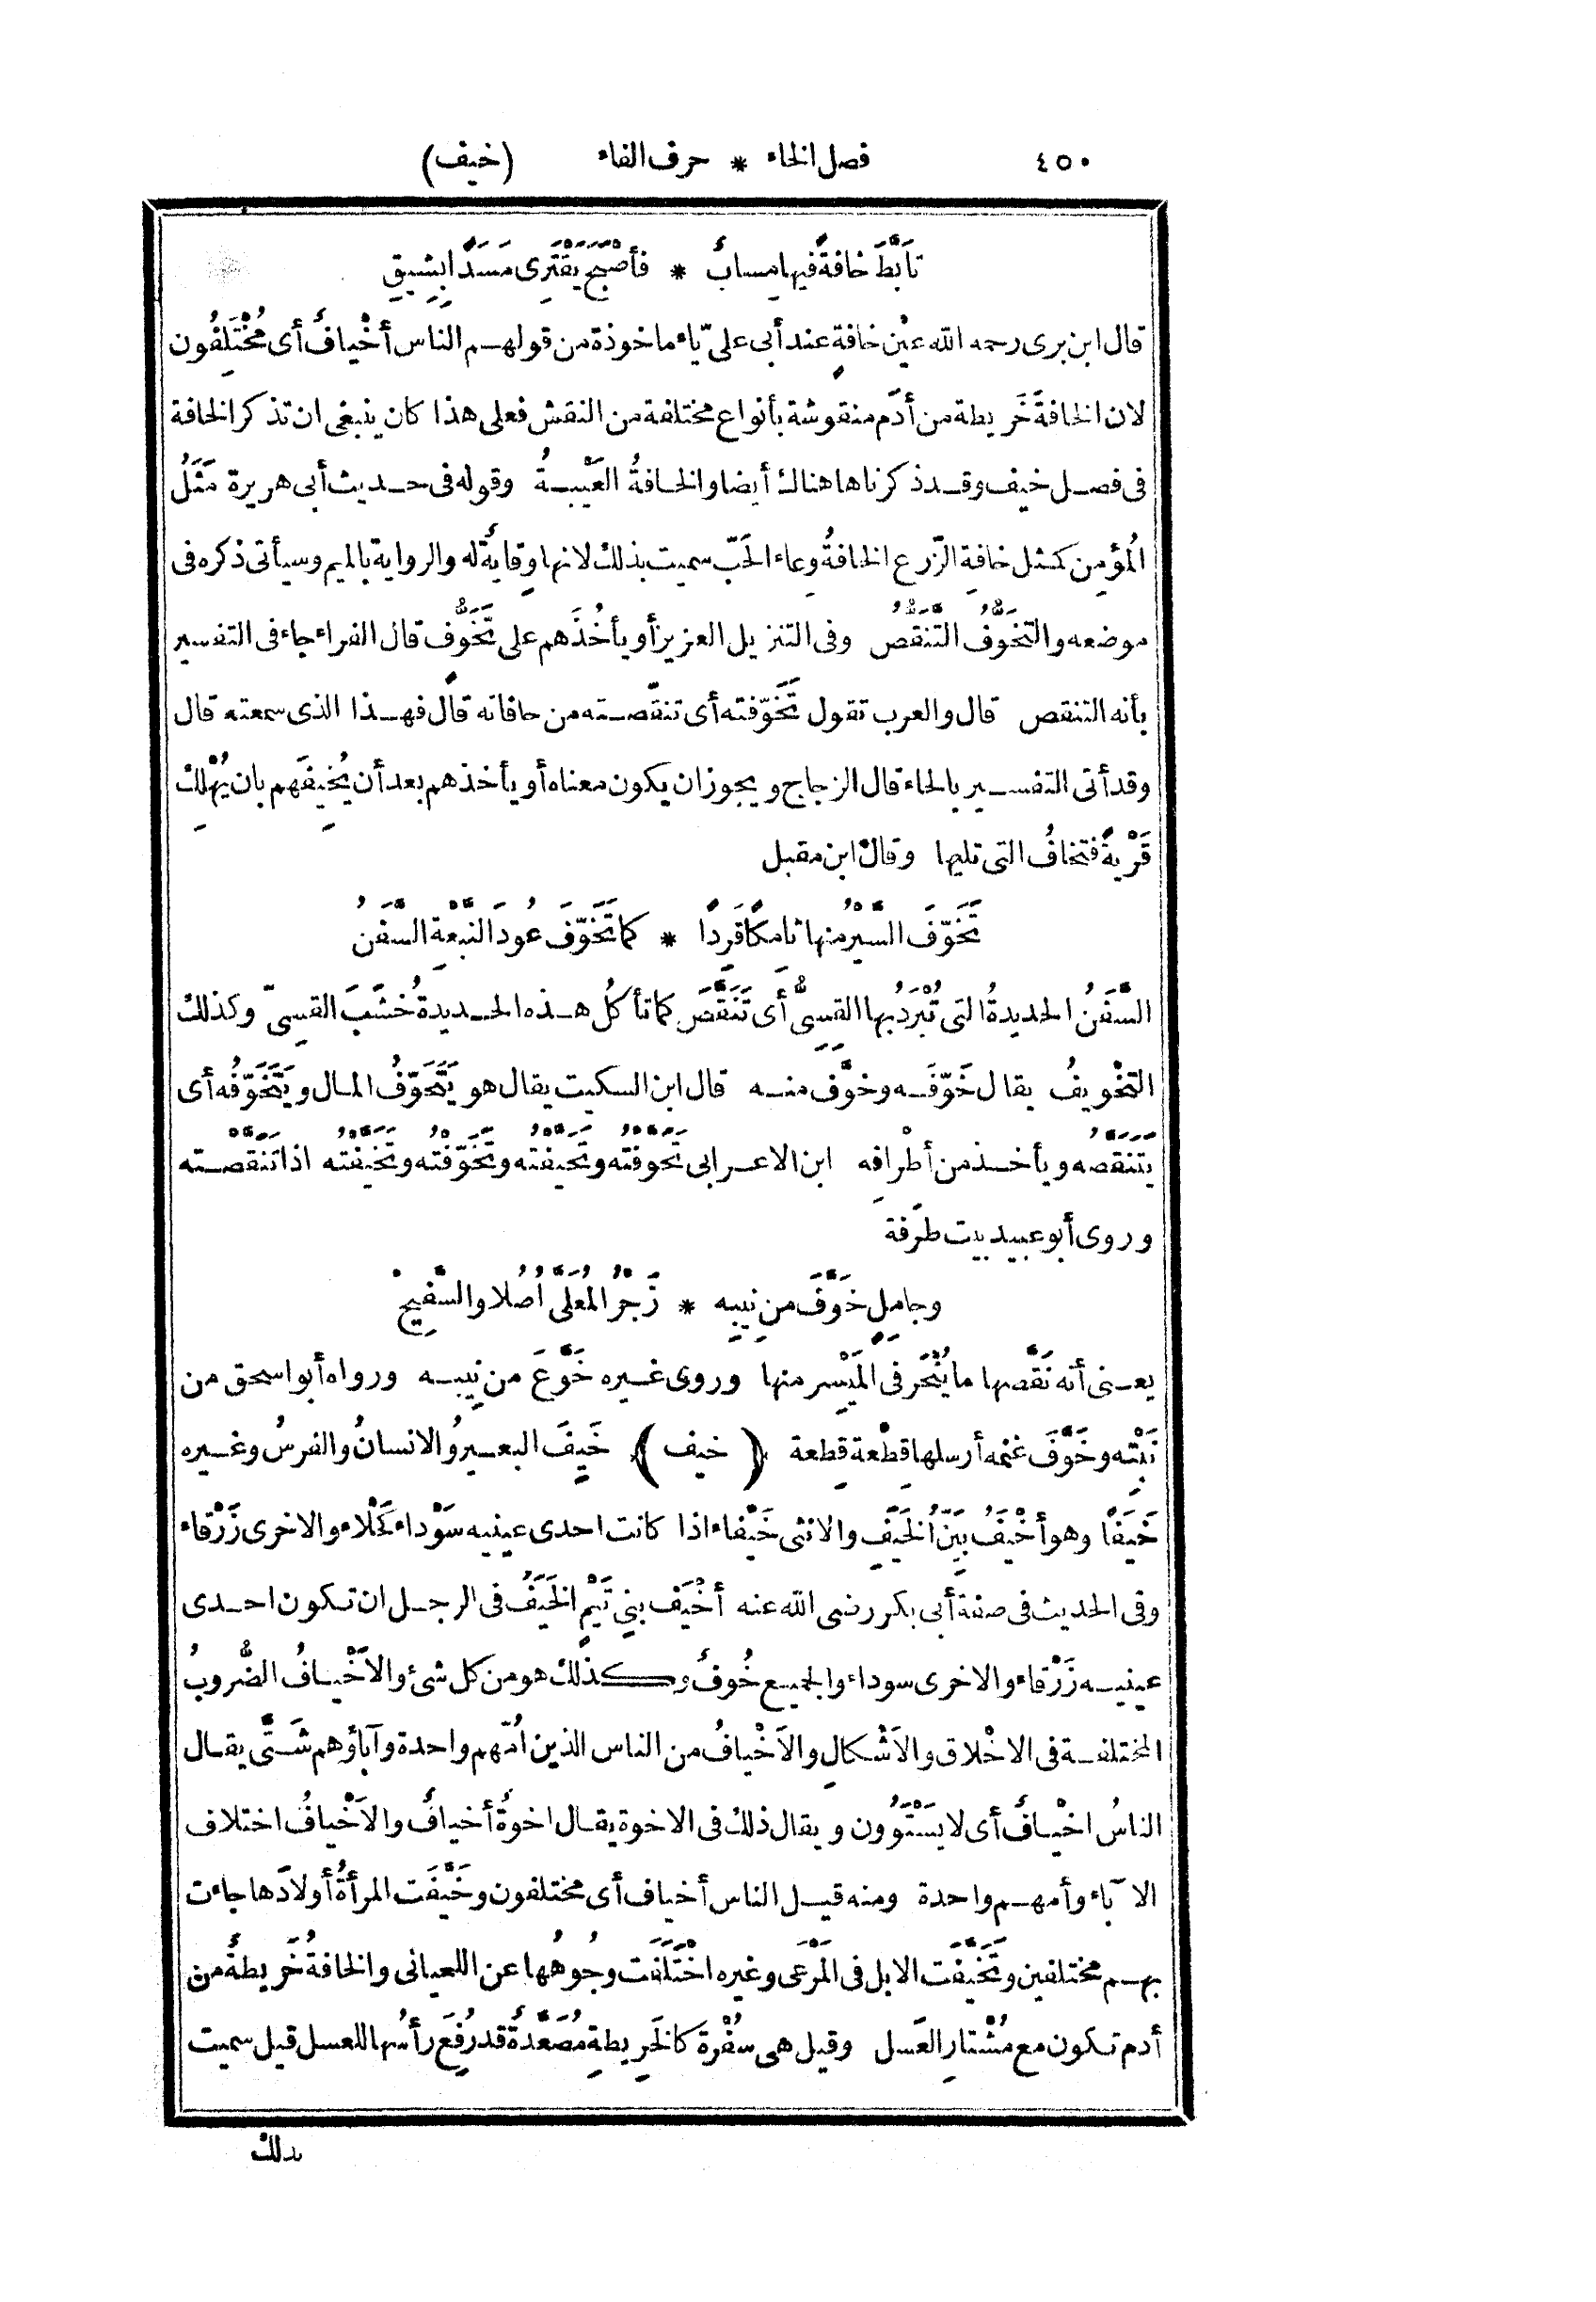 ٤٥٠ فصل الخاء * حرف الفاء (خيف)
تَأَبَّطَ خافةً فيها مِسابٌ * فأَصْبَحَ يَقْتَرِى مَسَدًا بِشِيقِ
قال ابن برى رحمه الله عَيْن خافةٍ عند أبى علىّ ياء ماخوذة من قولهم الناس أَخْيافٌ أى مُخْتَلِفُون
لان الخافةَ خَريطة من أَدَم منقوشة بأنواع مختلفة من النقش فعلى هذا كان ينبغى ان تذكر الخافة
فى فصل خيف وقد ذكرناها هناك أيضا والخافةُ العَيْبةُ وقوله فى حديث أبى هريرة مَثَلُ
المُؤمِن كمثل خافةِ الزّرع الخافةُ وِعاء الحَبّ سميت بذلك لانها وِقايةٌ له والرواية بالميم وسيأتى ذكره فى
موضعه والتَخَوُّفُ التَنَقُّصُ وفى التنزيل العزيز أو يأخُذَهم على تَخَوُّفٍ قال الفراء جاء فى التفسير
بأنه التنقص قال والعرب تقول تَخَوّفته أى تنقّصته من حافاته قال فهذا الذى سمعته قال
وقد أتى التفسير بالحاء قال الزجاج ويجوز ان يكون معناه أو يأخذهم بعد أن يُخِيفَهم بان يُهْلِكَ
قَرْيةً فتخافُ التى تليها وقال ابن مقبل
تَخَوّفَ السَّيْرُ منها تامكًا قَرِدًا * كما تَخَوّفَ عُودَ النَّبْعةِ السَّفَنُ
السَّفَنُ الحديدةُ التى تُبْرَدُ بها القِسِىُّ أى تَنَقَّصَ كما تأكُل هذه الحديدةُ خَشَبَ القِسِىّ وكذلك
التخْويفُ يقال خَوّفَه وخوَّف منه قال ابن السكيت يقال هو يَتَحَوّفُ المال ويَتَخَوّفُه أى
يَتَنَقَّصُه ويأخذ من أطْرافِه ابن الاعرابى تَحَوَّفْتُه وتَحَيَّفْتُه وتَخَوّفْتُه وتَخَيَّفْتُه اذا تَنَقَّصْته
وروى أبو عبيد بيت طَرَفة
وجامِلٍ خَوَّفَ من نِيبِه * زَجْرُ المُعَلَّى أُصُلا والسَّفِيحْ
يعنى أنه نَقَّصها ما يُنْحَر فى المَيْسِر منها وروى غيره خَوَّعَ من نِيبه ورواه أبو اسحق من
نَبْتِه وخَوَّفَ غنمه أرسلها قِطْعة قِطعة (خيف) خَيِفَ البعيرُ والانسانُ والفرسُ وغيره
خَيَفًا وهو أَخْيَفُ بَيِّنُ الخَيَفِ والانثى خَيْفاء اذا كانت احدى عينيه سَوْداء كَحْلاء والاخرى زَرْقاء
وفى الحديث فى صفة أبى بكر رضى الله عنه أَخْيَف بنِى تَيْمٍ الخَيَفُ فى الرجل ان تكون احدى
عينيه زَرْقاء والاخرى سوداء والجميع خُوفٌ وكذلك هو من كل شئ والاَخْيافُ الضُّروبُ
المختلفة فى الاخْلاق والاَشْكالِ والاَخْيافُ من الناس الذين اُمّهم واحدة وآباؤهم شَتَّى يقال
الناسُ اخْيافٌ أى لا يَسْتَوُون ويقال ذلك فى الاخوة يقال اخوةٌ أخيافٌ والاَخْيافُ اختلاف
الآباء وأمهم واحدة ومنه قيل الناس أخياف أى مختلفون وخَيَّفَت المرأةُ أولادَها جاءت
بهم مختلفين وتَخَيَّفَت الابل فى المَرْعَى وغيره اخْتَلَفَت وجُوهُها عن اللحيانى والخافةُ خَريطةٌ من
أدم تكون مع مُشْتارِ العَسل وقيل هى سُفْرة كالخَرِيطةِ مُصَعَّدةٌ قد رُفِعَ رأسُها للعسل قيل سميت
بذلك